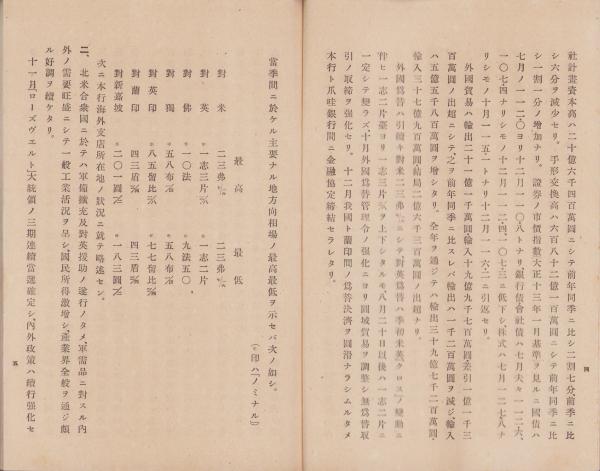 社計畫資本高ハ二十億六千四百萬圓ニシテ前年同季ニ比シ二割七分、前季ニ比
シ六分ヲ減少セリ。手形交換高ハ六百八十二億一百萬圓ニシテ前年同季ニ比
シ一割一分ノ增加ナリ。證券ノ市價指數大正十三年一月基準ヲ見ルニ國債ハ
七月ノ一一二・〇ヨリ十二月一一〇・八トナリ銀行債會社債ハ七月夫々一一二・六、
一〇七・四ナリシモノ十二月一一二・四、一〇七・三ニ低下シ、株式ハ七月一二七・八ナ
リシモノ十月一一五・一トナリ十二月一一六・二ニ引返セリ。
外國貿易ハ輸出二十一億一千萬圓、輸入十九億九千七百萬圓、差引一億一千三
百萬圓ノ出超ニシテ、之ヲ前年同季ニ比スレバ輸出ハ一千二百萬圓ヲ減ジ、輸入
ハ五億五千八百萬圓ヲ增シタリ。全年ヲ通ジテハ輸出三十九億七千二百萬圓、
輸入三十七億九百萬圓、結局二億六千三百萬圓ノ出超ナリ。
外國爲替ハ引續キ對米二三弗
ニシテ對英爲替ハ季初米英「クロス」ノ變動ニ
伴ヒ一志二片臺ヨリ一志三片
ヲ上下シタルモ八月二十日以後ハ一志二片ニ
一定シテ變ラズ、十月外國爲替管理令ノ强化ニヨリ圓域貿易ヲ調整シ無爲替取
引ノ取締ヲ强化セリ。十二月我國ト蘭印間ノ爲替決濟ヲ圓滑ナラシムルタメ
本行ト爪哇銀行間ニ金融協定締結セラレタリ。
四
當季間ニ於ケル主要ナル地方向相場ノ最高最低ヲ示セバ次ノ如シ。
印ハ「ノミナル」
最高 最低
對米 二三弗 二三弗
對英 一志三片 一志二片
對佛 一〇法 九法五〇
對獨 五八布 五八布
對英印 八五留比 七七留比
對蘭印 四三盾 四三盾
對新嘉坡 二〇一圓 一八三圓
次ニ本行海外支店所在地ノ狀況ニ就テ略述セン。
二、北米合衆國ニ於テハ軍備擴充及對英援助ノ遂行ノタメ、軍需品ニ對スル內
外ノ需要旺盛ニシテ一般工業活況ヲ呈シ、國民所得激增シ、產業界全般ヲ通ジ頗
ル好調ヲ續ケタリ。
十一月、ローズヴェルト大統領ノ三期連續當選確定シ、內外政策ハ續行强化セ
五